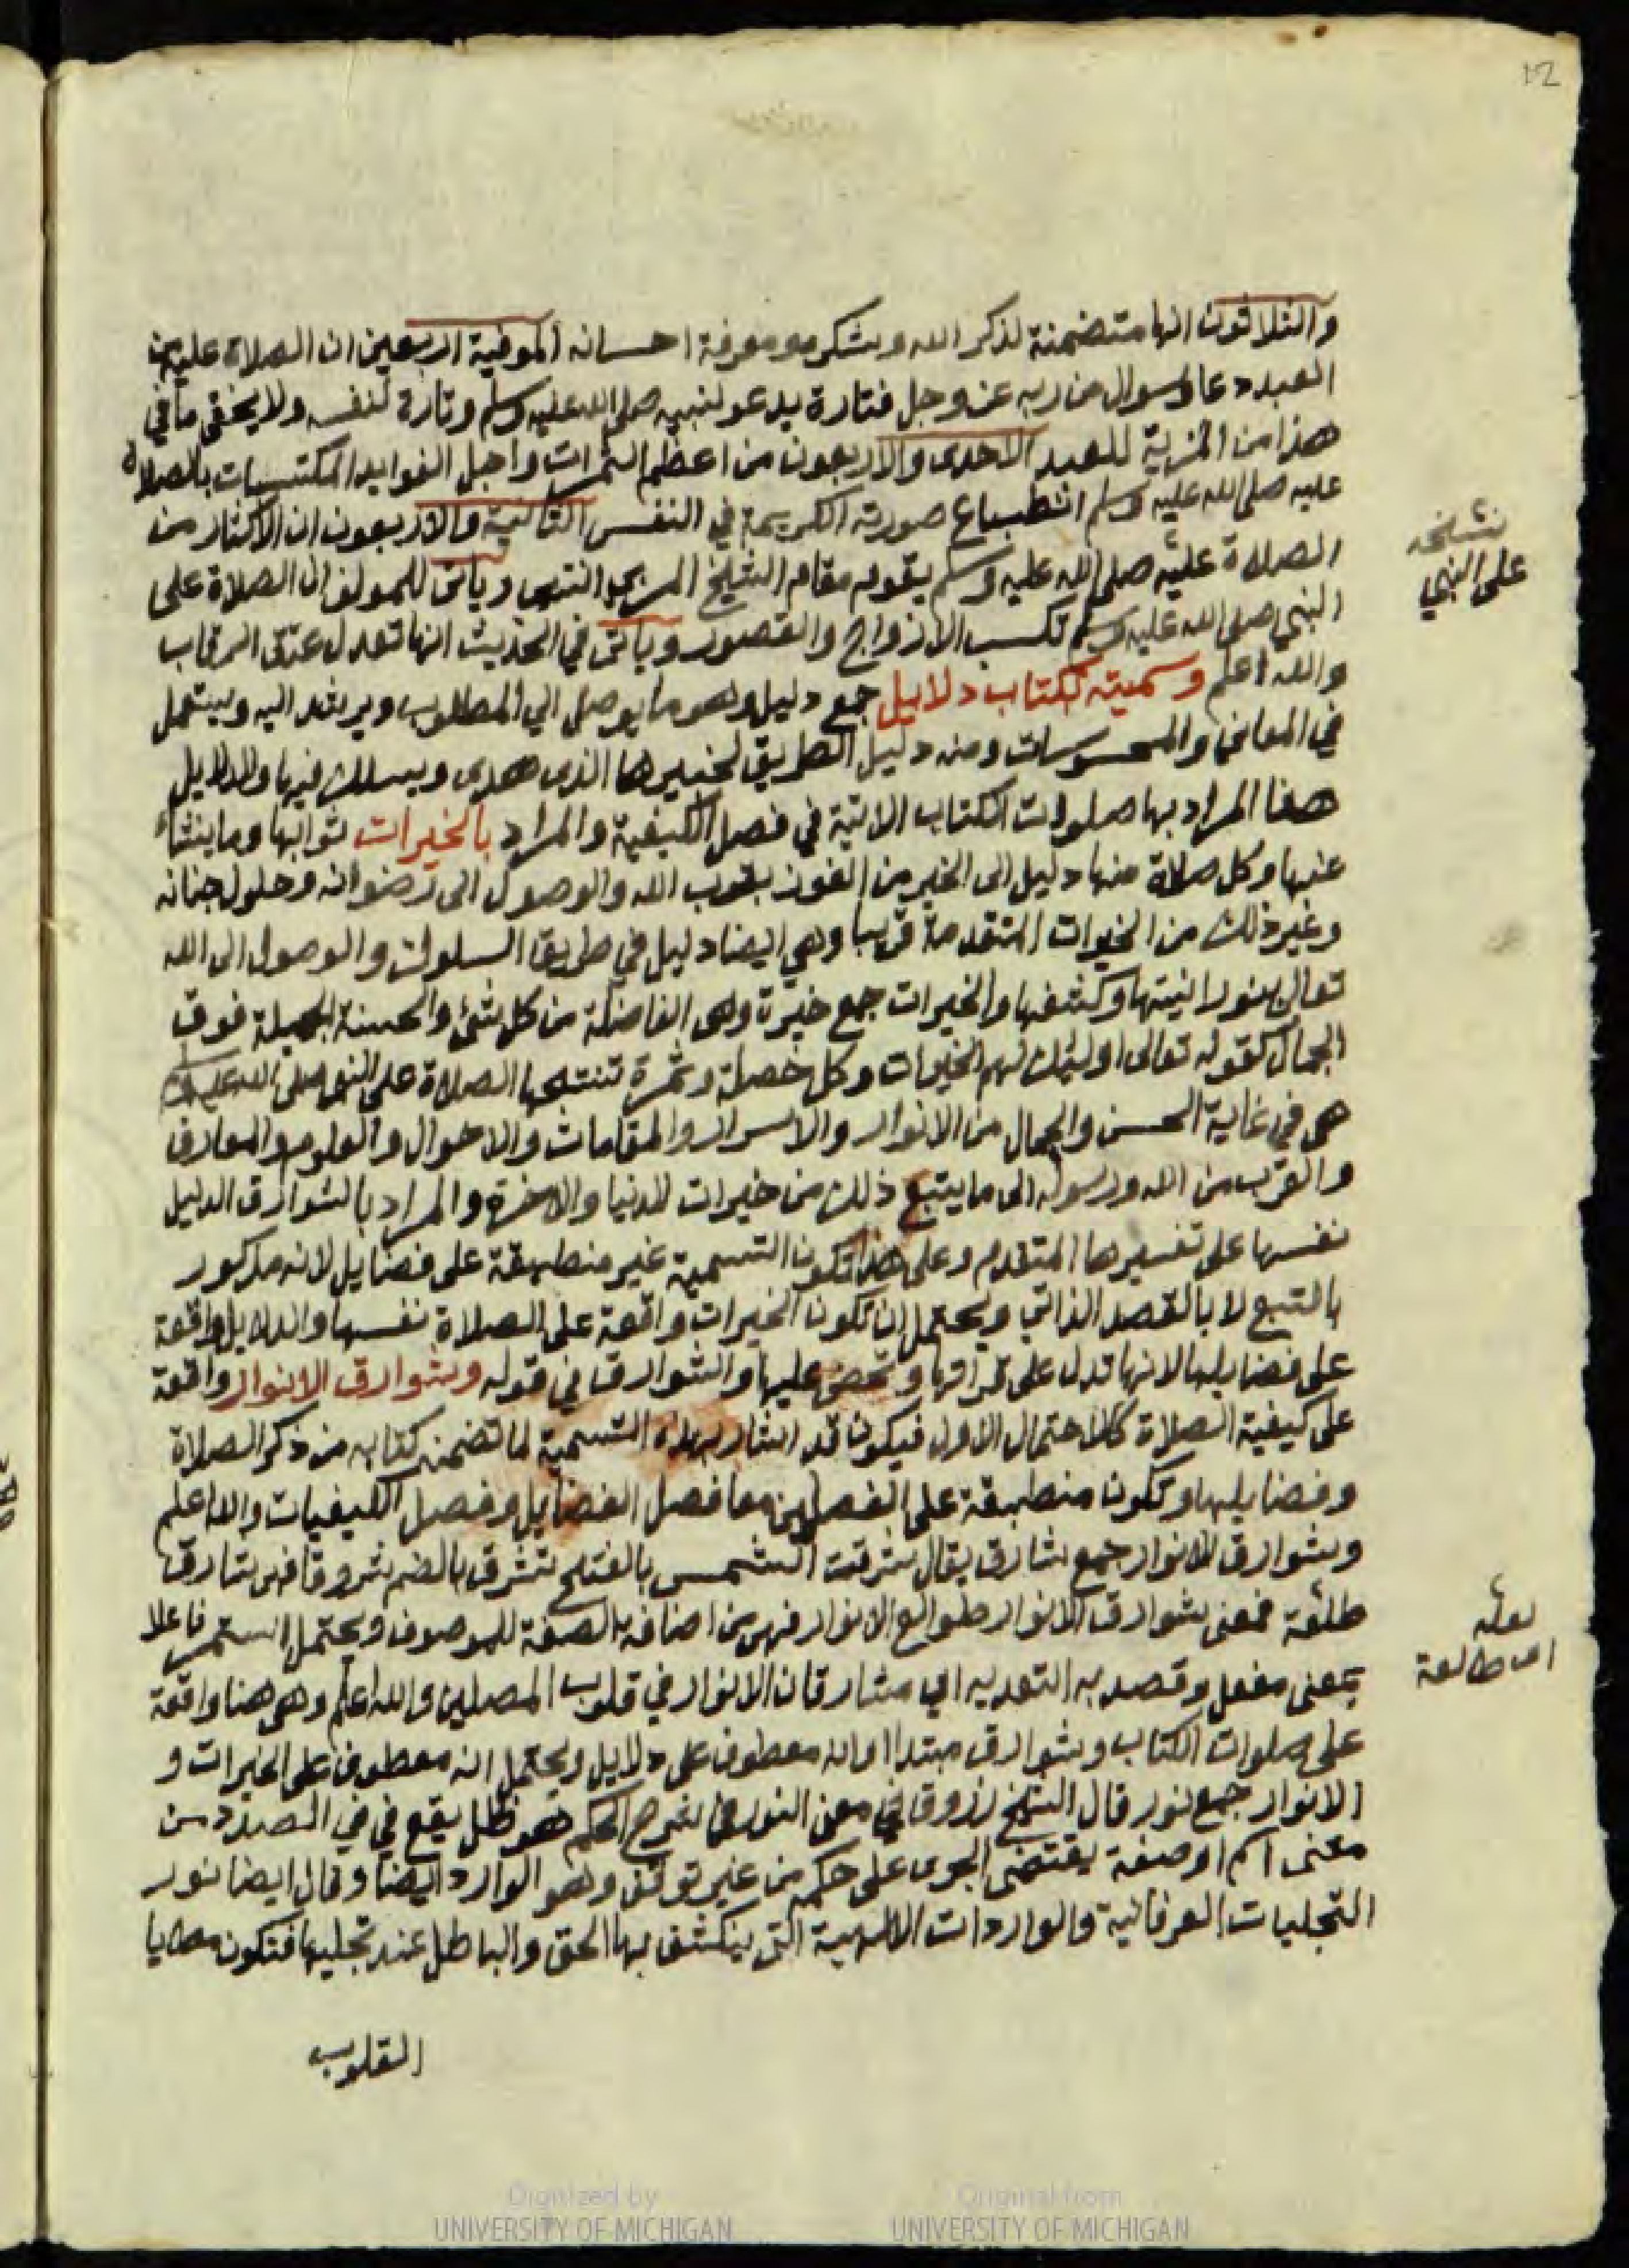 12
والثلاثون انها متضمنة لذكر الله وشكره ومعرفة احسانه الموفية اربعين ان الصلاة عليه من
العبد دعا وسوال من ربه عز وجل فتارة يدعو لنبيه صلى الله عليه وسلم وتارة لنفسه ولا يخفى ما في
هذا من المزية للعبد الاحدى والاربعون من اعظم الثمرات واجل الفوايد المكتسبات بالصلاة
عليه صلى الله عليه وسلم انطباع صورته الكريمة في النفس الثانية والاربعون ان الاكثار من
الصلاة عليه صلى الله عليه وسلم يقوم مقام الشيخ المربي انتهى وياتى للمولف ان الصلاة على
نسخه
على النبي
النبي صلى الله عليه وسلم تكسب الازواج والقصور وياتى في الحديث انها تعدل عتق الرقاب
والله اعلم وسميته بكتاب دلايل جمع دليل وهو ما يوصل الي المطلوب ويرشد اليه ويستعمل
في المعاني والمحسوسات ومنه دليل الطريق لخبيرها الذى هدى ويسلك فيها والدلايل
هنا المراد بها صلوات الكتاب الاتية في فصل الكيفية والمراد بالخيرات ثوابها وما ينشاء
عنها وكل صلاة منها دليل الى الخير من الفوز بقرب الله والوصول الى رضوانه وحلول جنانه
وغير ذلك من الخيرات المتقدمة قريبا وهي ايضا دليل في طريق السلوك والوصول الى الله
تعالى بنورانيتها وكشفها والخيرات جمع خيرة وهى الفاضلة من كل شئ والحسنة الجميلة فوق
الجمال كقوله تعالى اوليك لهم الخيرات وكل خصلة وثمرة تنتجها الصلاة على النبي صلى الله عليه وسلم
هى في غاية الحسن والجمال من الانوار والاسرار والمقامات والاحوال والعلوم والمعارف
والقرب من الله ورسوله الى ما يتبع ذلك من خيرات الدنيا والاخرة والمراد بالشوارق الدليل
نفسها على تفسيرها المتقدم وعلى هذا تكون التسمية غير منطبقة على فضايل لانه مذكور
بالتبع لا بالقصد الذاتي ويحتمل ان تكون الخيرات واقعة على الصلاة نفسها والدلايل واقعة
على فضايلها لانها تدل على قراتها وتحض عليها والشوارق في قوله وشوارق الانوار واقعة
على كيفية الصلاة كالاحتمال الاول فيكون قد اشار بهذه التسمية لما تضمنه كتابه من ذكر الصلاة
وفضايلها وتكون منطبقة على الفصلين معا فصل الفضايل وفصل الكيفيات والله اعلم
وشوارق الانوار جمع شارق يقال شرقت الشمس بالفتح تشرق بالضم شروقا فهى شارقة
طلعة فمعنى شوارق الانوار طوالع الانوار فهى من اضافة الصفة للموصوف ويحتمل انه استعمل فاعلا
لعله
اى طالعة
بمعنى مفعل وقصد به التعديه اي مشارقات الانوار في قلوب المصلين والله اعلم وهى هنا واقعة
على صلوات الكتاب وشوارق مبتدا او انه معطوف على دلايل ويحتمل انه معطوف على الخيرات و
الانوار جمع نور قال الشيخ زروق في معنى النور في شرح الحكم هو ظل يقع في في الصدر من
معنى اسم او صفة يقتضى الجرى على حكمه من غير توقف وهو الوارد ايضا وقال ايضا نور
التجليات العرفانية والواردات الالهية التى ينكشف بها الحق والباطل عند تجليها فتكون مطايا
القلوب
Digitized by
UNIVERSITY OF MICHIGAN
Original from
UNIVERSITY OF MICHIGAN